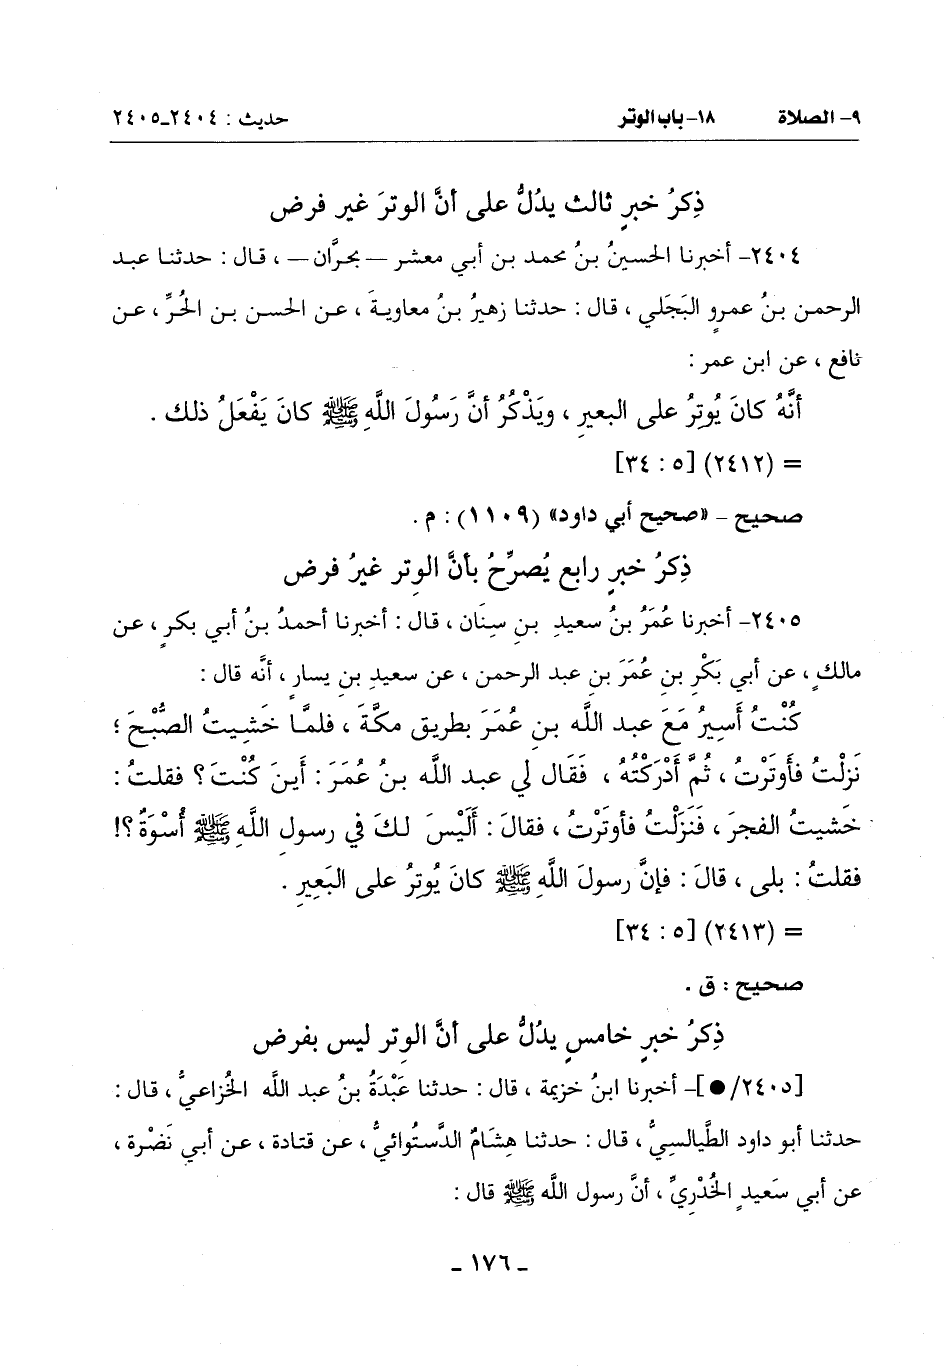 ٩- الصلاة ١٨- باب الوتر حديث : ٢٤٠٤-٢٤٠٥
ذِكرُ خبرٍ ثالث يدُلُّ على أنَّ الوترَ غير فرض
٢٤٠٤- أخبرنا الحسينُ بنُ محمد بن أبي معشر – بحرَّان – ، قال : حدثنا عبد
الرحمن بنُ عمرٍو البَجَلي ، قال : حدثنا زهيرُ بنُ معاويةَ ، عن الحسن بن الحُرِّ ، عن
نافع ، عن ابن عمر :
أنَّهُ كانَ يُوتِرُ على البعيرِ ، ويَذْكُرُ أنَّ رَسُولَ اللَّهِ ﷺ كانَ يَفْعَلُ ذلك .
= (٢٤١٢) [٥ : ٣٤]
صحيح – «صحيح أبي داود» (١١٠٩) : م .
ذِكرُ خبرٍ رابع يُصرِّحُ بأنَّ الوترِ غيرُ فرض
٢٤٠٥- أخبرنا عُمَرُ بنُ سعيدِ بنِ سِنَان ، قال : أخبرنا أحمدُ بنُ أبي بكرٍ ، عن
مالكٍ ، عن أبي بَكْرِ بنِ عُمَرَ بنِ عبد الرحمن ، عن سعيدِ بنِ يسارٍ ، أنَّه قال :
كُنْتُ أَسيرُ مَعَ عبد اللَّه بن عُمَرَ بطريق مكَّةَ ، فلمَّا خَشيتُ الصُّبْحَ ؛
نَزلْتُ فأَوترْتُ ، ثُمَّ أَدْرَكْتُهُ ، فَقَال لي عبد اللَّه بنُ عُمَرَ : أَينَ كُنْتَ ؟ فقلتُ :
خَشيتُ الفجرَ ، فَنَزَلْتُ فأوترْتُ ، فقالَ : أَلَيْسَ لكَ في رسولِ اللَّهِ ﷺ أُسْوَةٌ ؟!
فقلتُ : بلى ، قالَ : فإنَّ رسولَ اللَّهِ ﷺ كانَ يُوتِرُ على البَعِيرِ .
= (٢٤١٣) [٥ : ٣٤]
صحيح : ق .
ذِكرُ خبرٍ خامسٍ يدُلُّ على أنَّ الوِترِ ليس بفرض
[٢٤٠٥/●]- أخبرنا ابنُ خزيمة ، قال : حدثنا عَبْدَةُ بنُ عبد اللَّه الخُزاعيُّ ، قال :
حدثنا أبو داود الطَّيالسِيُّ ، قال : حدثنا هِشَامٌ الدَّستُوائيُّ ، عن قتادة ، عن أبي نَضْرة ،
عن أبي سَعيدٍ الخُدْرِيِّ ، أنَّ رسول اللَّه ﷺ قال :
- ١٧٦ -